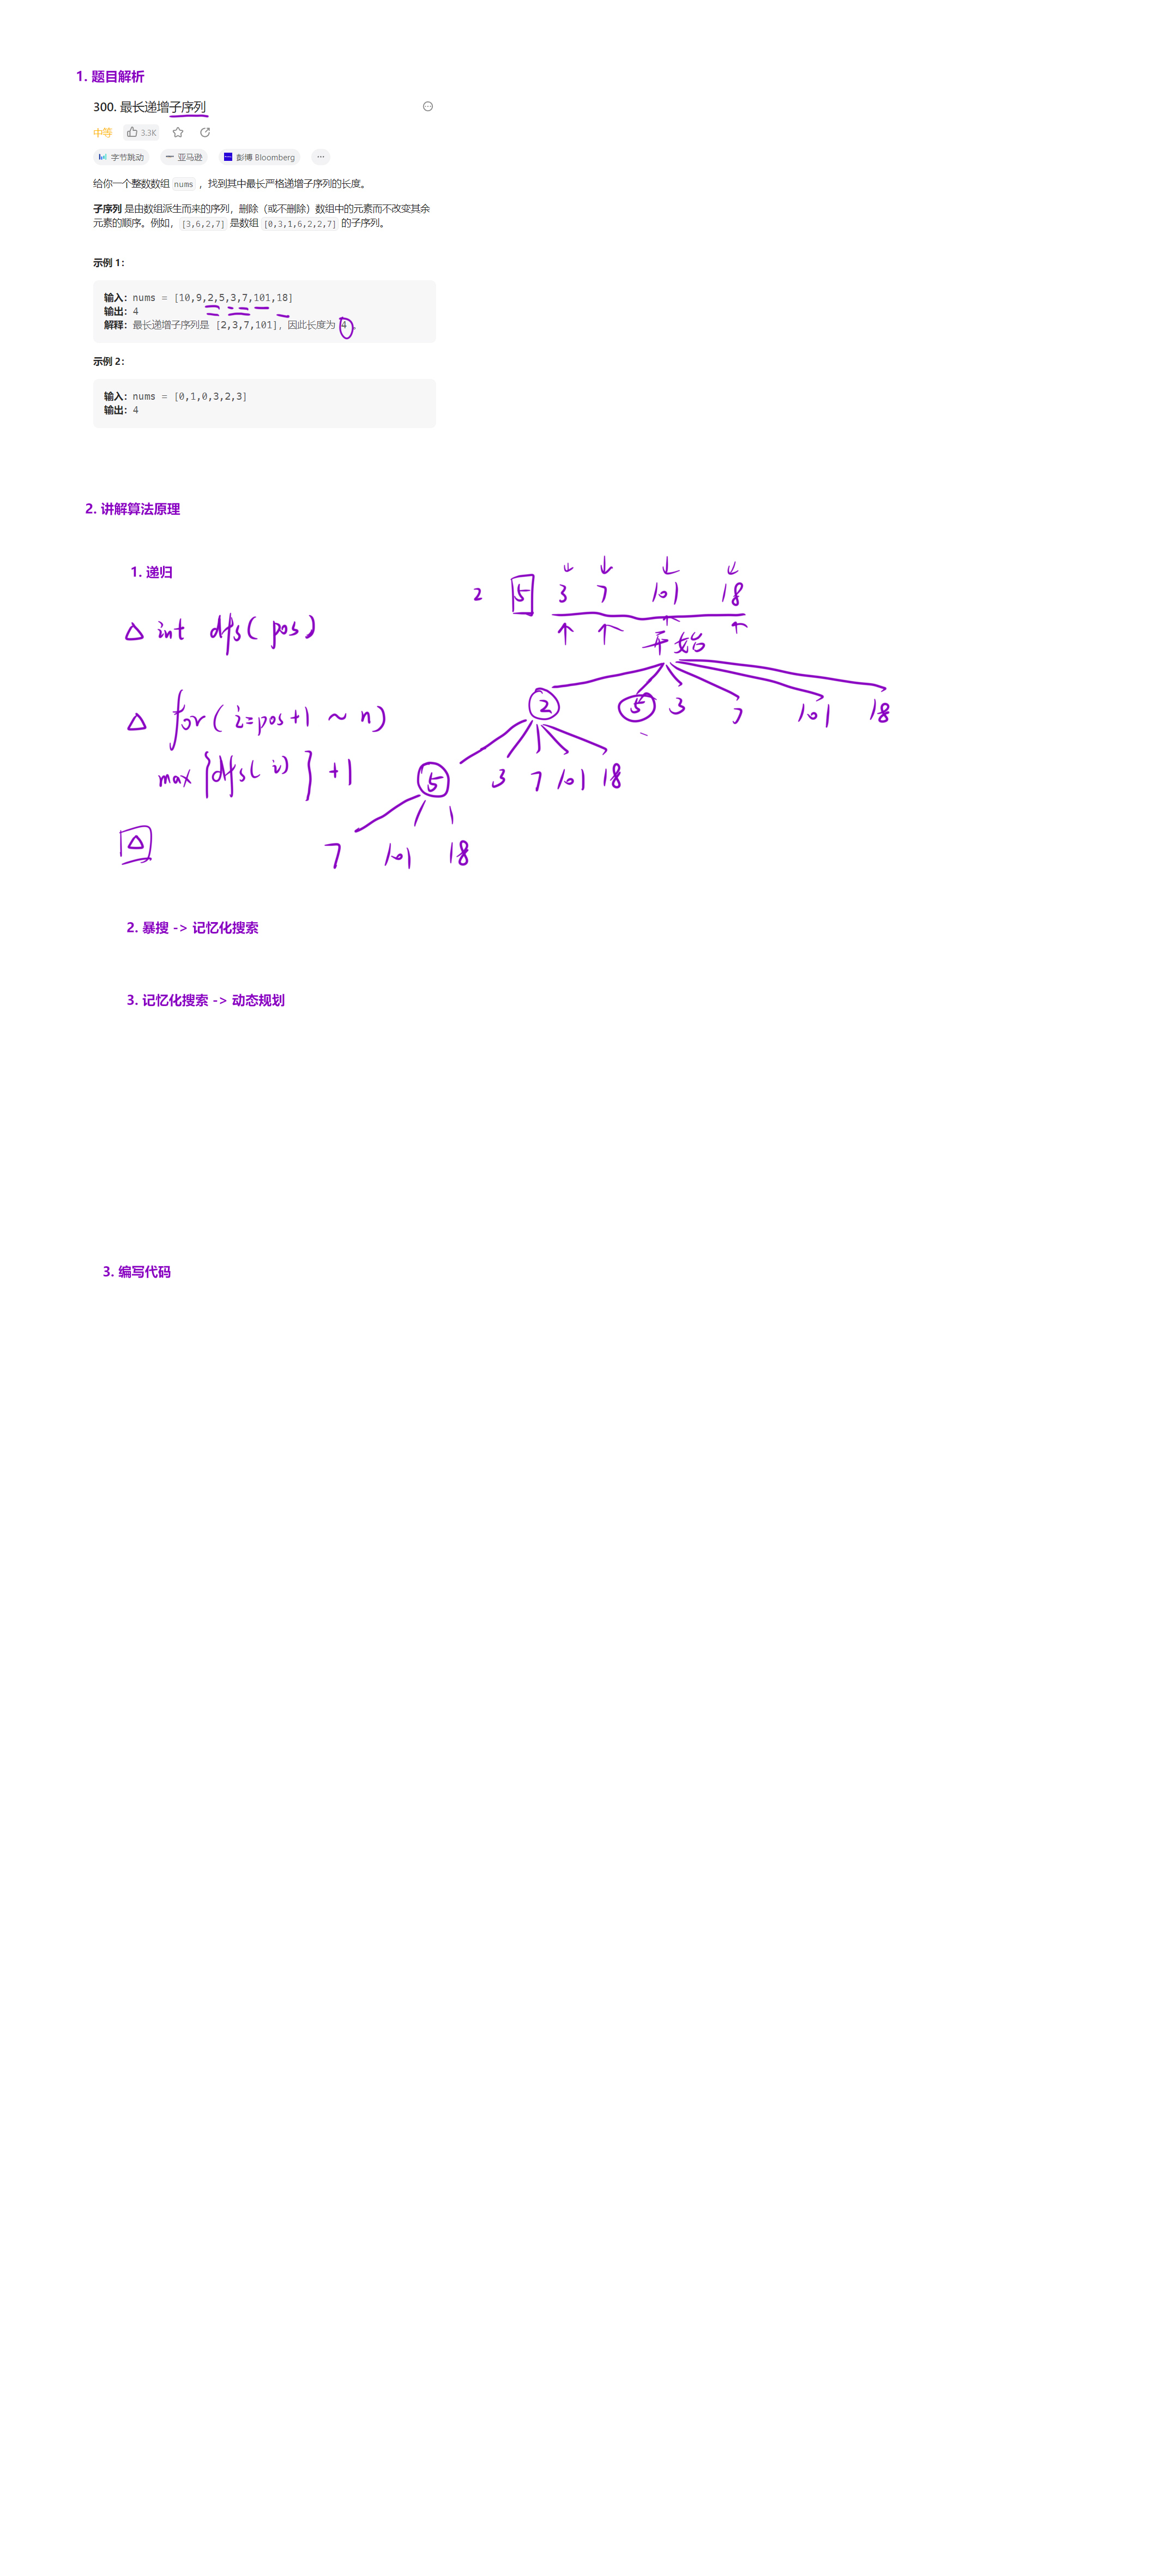 1. 题目解析
300. 最长递增子序列
中等 3.3K
字节跳动 亚马逊 彭博 Bloomberg ···
给你一个整数数组 nums ，找到其中最长严格递增子序列的长度。
子序列 是由数组派生而来的序列，删除（或不删除）数组中的元素而不改变其余
元素的顺序。例如，[3,6,2,7] 是数组 [0,3,1,6,2,2,7] 的子序列。
示例 1：
输入：nums = [10,9,2,5,3,7,101,18]
输出：4
解释：最长递增子序列是 [2,3,7,101]，因此长度为 4 。
示例 2：
输入：nums = [0,1,0,3,2,3]
输出：4
2. 讲解算法原理
1. 递归
2 5 3 7 101 18
△ int dfs( pos )
开始
△ for( i=pos+1 ~ n )
2 5 3 7 101 18
max {dfs( i) } +1
5 3 7 101 18
△
7 101 18
2. 暴搜 -> 记忆化搜索
3. 记忆化搜索 -> 动态规划
3. 编写代码